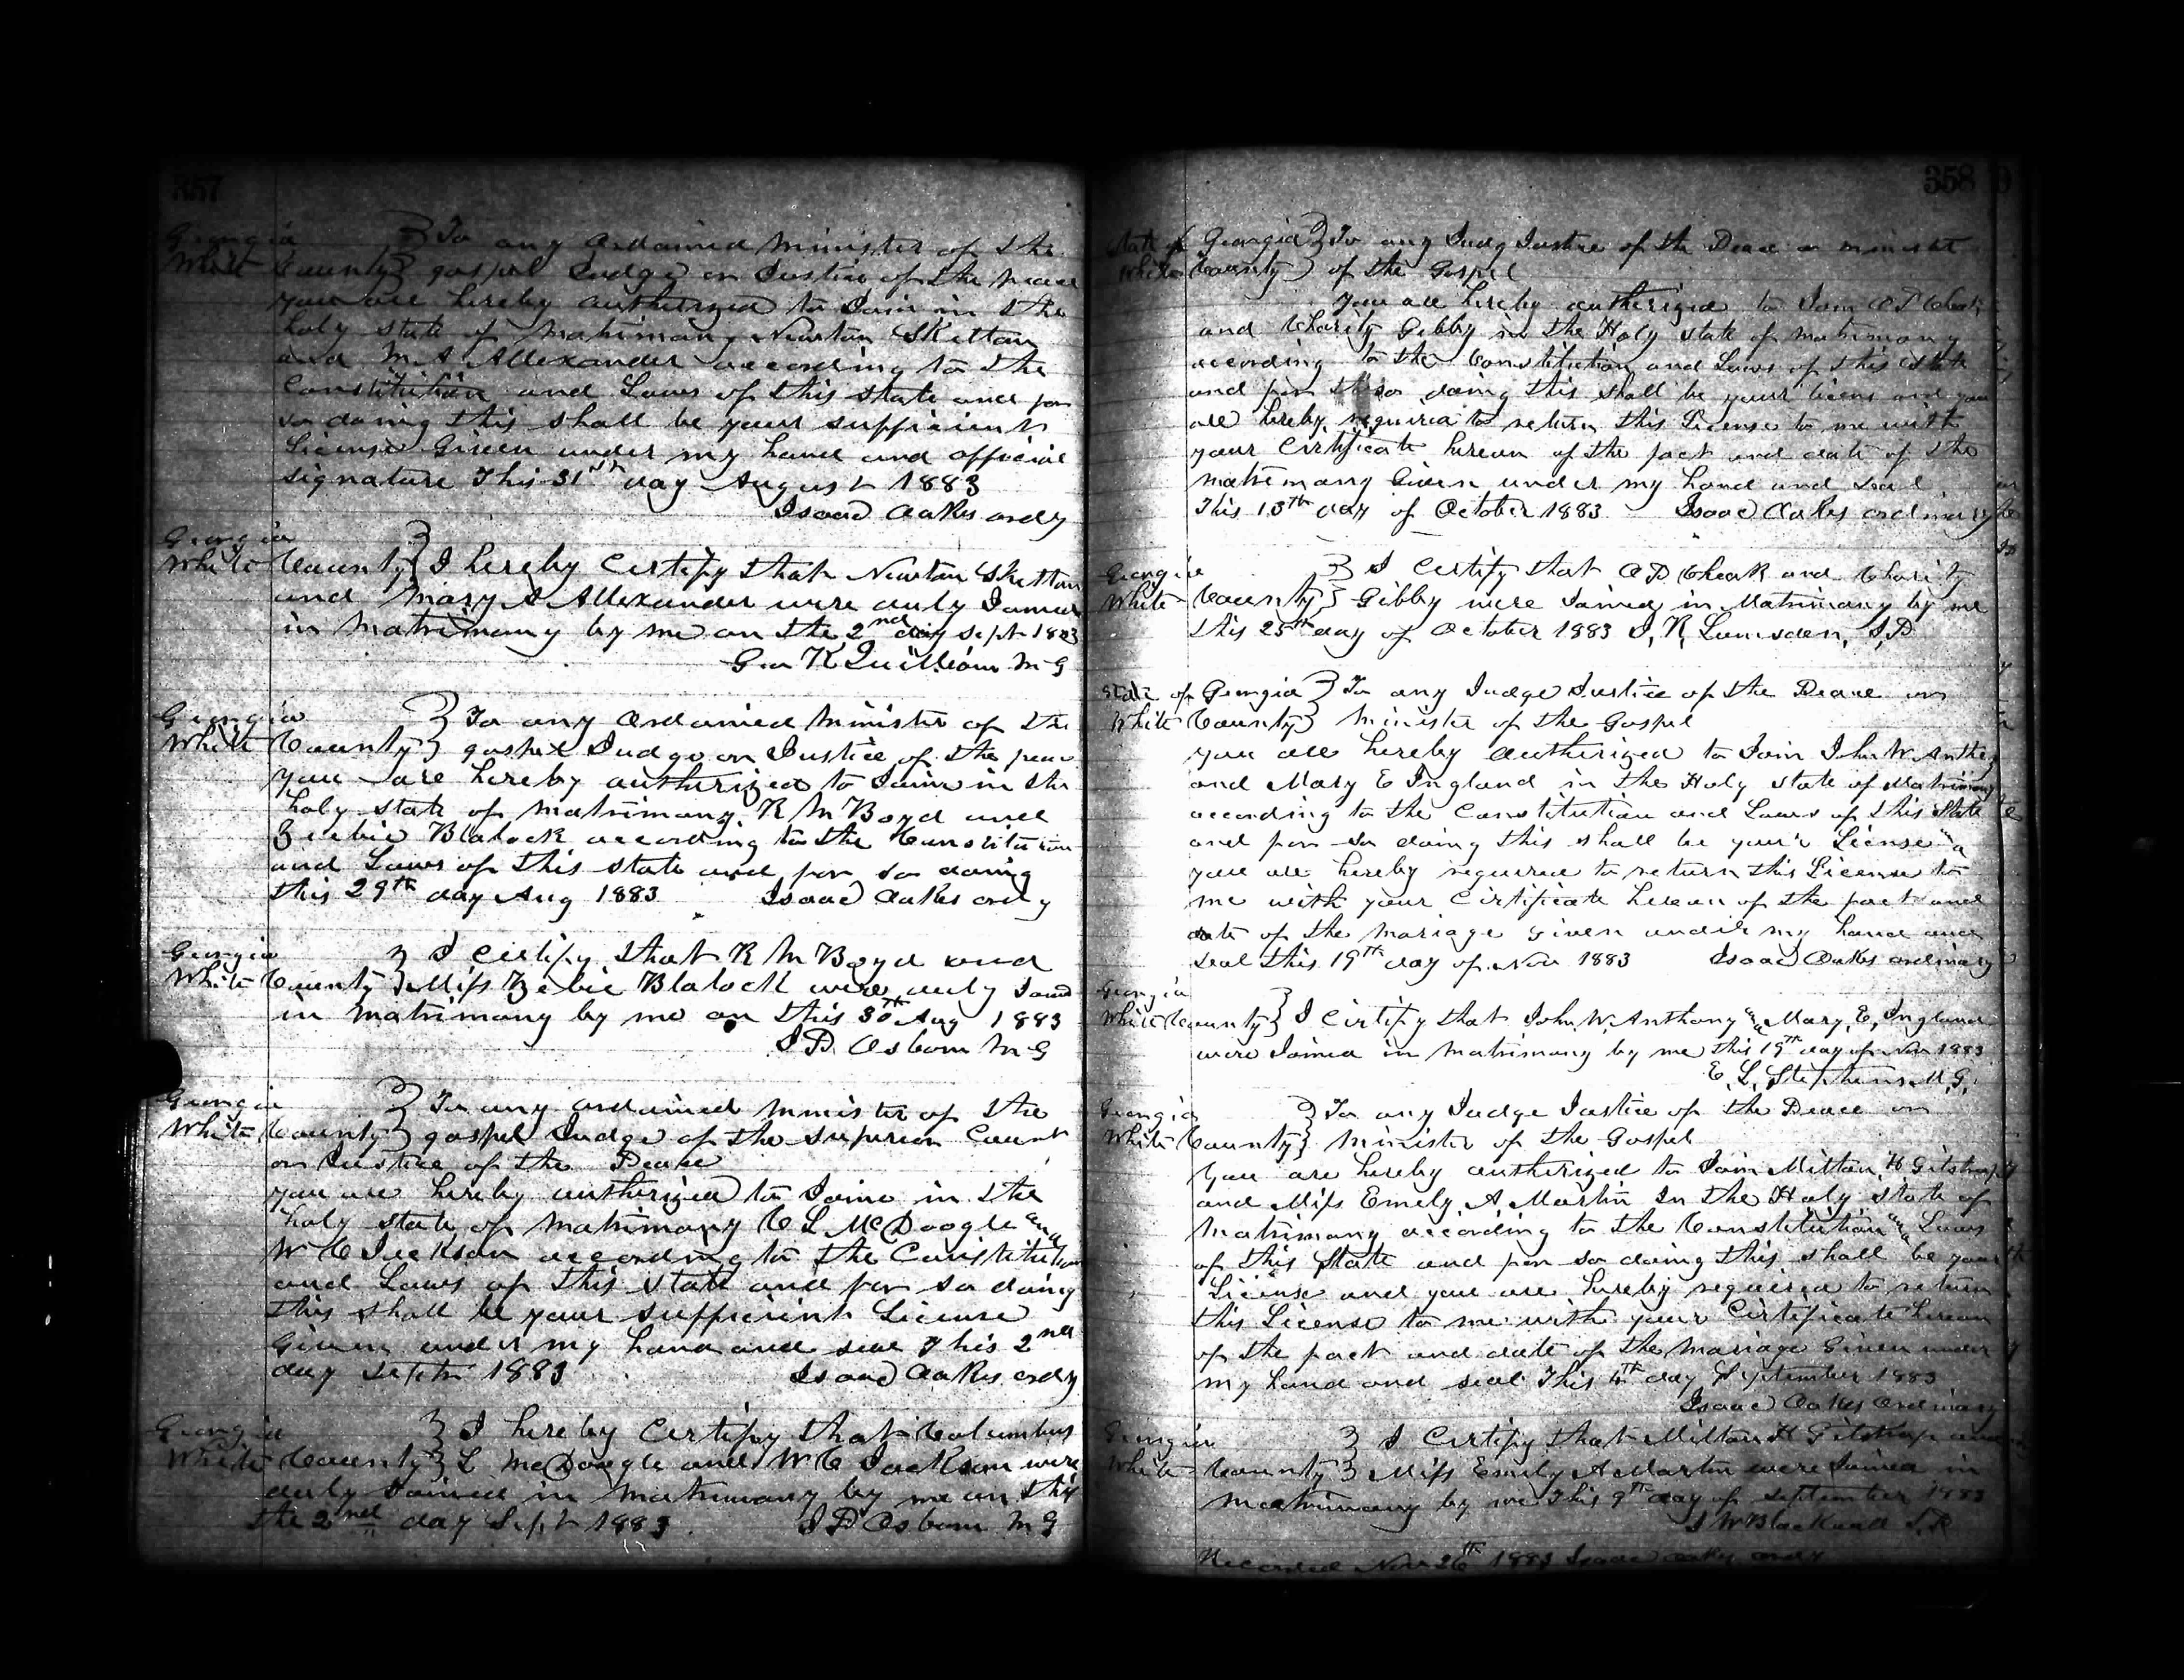 357
Georgia } To any ordained Minister of the
White County } gospel Judge or Justice of the peace
you are hereby autherized to Join in the
holy state of matrimony Newton Skelton
and M. A Allexander according to the
Constitution and Laws of this state and for
so doing this shall be your sufficient
License Given under my hand and official
signature This 31st day August 1883
Isaac Oakes ordy
Georgia }
White County } I hereby Certify that Newton Skelton
and Mary A Allexander were duly Joined
in Matrimony by me on the 2nd day sept 1883
Geo K Quilliam M G
Georgia } To any Ordained Minister of the
White County } gospel Judge or Justice of the peace
you are hereby autherized to Joine in the
holy state of matrimony R M Boyd and
Zebie Blalock according to the Constitution
and Laws of this state and for so doing
this 29th day Aug 1883 Isaac Oakes ordy
Georgia } I Certify that R M Boyd and
White County } Miss Zebie Blalock were duly Joined
in matrimony by me on this 30th Aug 1883
J D Osborn M G
Georgia } To any ordained Minister of the
White County } gospel Judge of the Superior Court
or Justice of the Peace
you are hereby autherized to Joine in the
holy state of matrimony C L McDoogle and
W C Jackson according to the Constitution
and Laws of this state and for so doing
this shall be your sufficient License
Given under my hand and seal This 2nd
day Septr 1883 Isaac Oakes ordy
Georgia } I hereby Certify that Columbus
White County } L McDoogle and W C Jackson were
duly Joined in Matrimony by me on this
the 2nd day Sept 1883 J D Osborn M G
358
State of Georgia } To any Judg Justice of the Peace or minister
White County } of the Gospel
You are hereby autherized to Join O P Cheek
and Charity Gibby in the Holy state of matrimony
according to the Constitution and Laws of this state
and for so doing this shall be your licens and you
are hereby required to return this License to me with
your Certificate hereon of the fact and date of the
matrimony Given under my hand and seal
This 13th day of October 1883 Isaac Oakes ordinary
Georgia } I Certify that O P Cheek and Charity
White County } Gibby were Joined in Matrimony by me
this 25th day of October 1883 J. R. Lumsden, J, P
State of Georgia } To any Judge Justice of the Peace or
White County } Minister of the Gospel
you are hereby Autherized to Join John W Anthony
and Mary E England in the Holy State of Matrimony
according to the Constitution and Laws of this State
and for so doing this shall be your License and
you are hereby required to return this License to
me with your Certificate hereon of the fact and
date of the Mariage Given under my hand and
seal this 19th day of Nov 1883 Isaac Oakes ordinary
Georgia }
White County } I Certify that John W. Anthony and Mary, E, England
were Joined in Matrimony by me this 19th day of Nov 1883
E, L, Stephens M, G,
Georgia } To any Judge Justice of the Peace or
White County } Minister of the Gospel
You are hereby autherized to Join Milton, H Gilstrap
and Miss Emely A, Martin In the Holy State of
Matrimony according to the Constitution and Laws
of this State and for so doing this shall be your
License and you are hereby required to return
this License to me with your Certificate hereon
of the fact and date of the Mariage Given under
my hand and seal This 4th day September 1883
Isaac Oakes Ordinary
Georgia } I Certify that Milton H Gilstrap and
White County } Miss Emily A Martin were Joined in
Matrimony by me This 9th day of September 1883
J W Blackwell J. P.
Recorded Nov 26th 1883 Isaac Oakes ordy